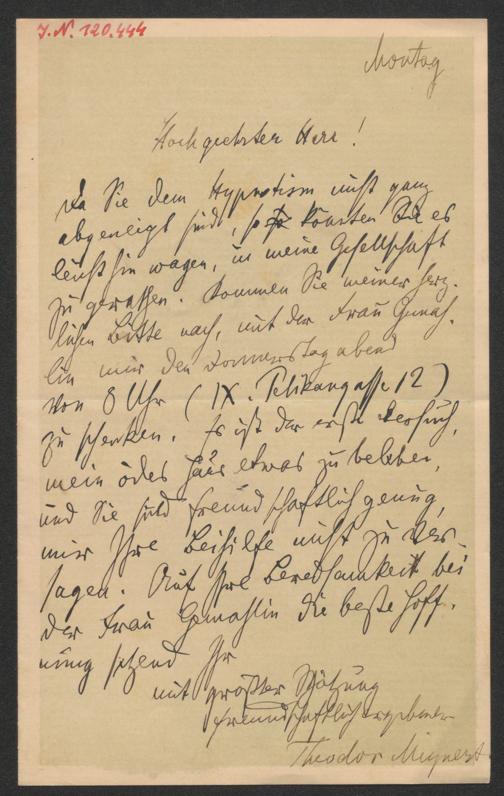 J. N. 120.444
Montag
Hochgeehrter Herr!
Da Sie dem Hypnotism nicht ganz
abgeneigt sind, so könnten Sie es
leichthin wagen, in meine Gesellschaft
zu gerathen. Kommen Sie meiner herz-
lichen Bitte nach, mit der Frau Gemah-
lin mir den Donnerstag abend
von 8 Uhr (IX. Pelikangasse 12)
zu schenken. Es ist der erste Versuch,
mein ödes Haus etwas zu beleben,
und Sie sind freundschaftlich genug,
mir Ihre Beihilfe nicht zu ver-
sagen. Auf Ihre Beredsamkeit bei
der Frau Gemahlin die beste Hoff-
nung setzend Ihr
mit größter Schätzung
freundschaftlich ergebener
Theodor Meynert